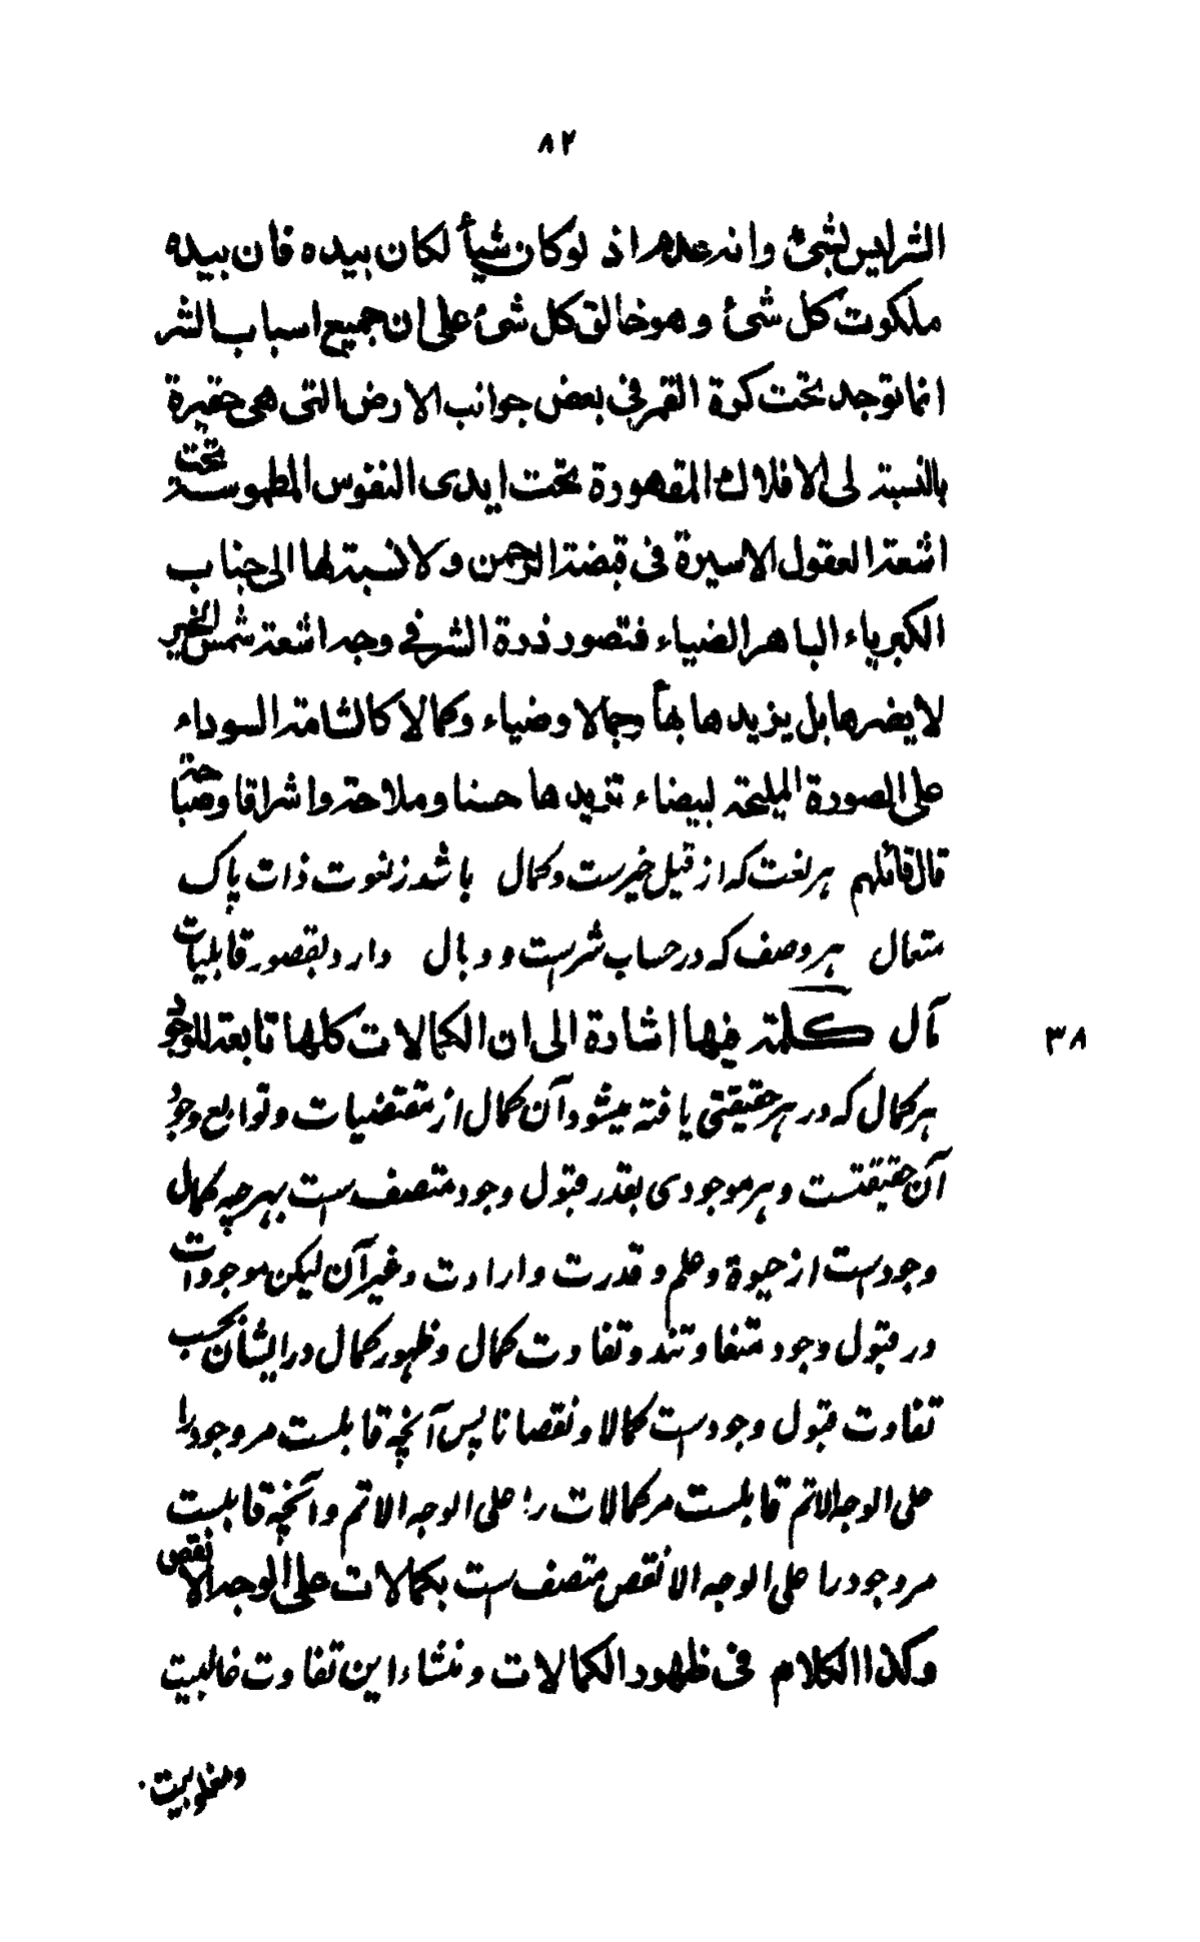 ٨٢
الشر ليس بشئ وانه عدم اذ لو كان شيأ لكان بيده فان بيده
ملكوت كل شئ وهو خالق كل شئ على ان جميع اسباب الشر
انما توجد تحت كرة القمر فى بعض جوانب الارض التى هى حقيرة
بالنسبة الى الافلاك المقهورة تحت ايدى النفوس المطموسة تحت
اشعة العقول الاسيرة فى قبضة الرحمن ولا نسبة لها الى جناب
الكبرياء الباهر الضياء فتصور ذرة الشر فى وجه اشعة شمس الخير
لا يضرها بل يزيدها بهأ وجمالا وضياء وكمالا كالشامة السوداء
على الصورة المليحة لبيضاء تزيدها حسنا وملاحة واشراقا وصباحة
قال قائلهم هر نعت كه از قبيل خيرست وكمال باشد ز نعوت ذات پاك
متعال هر وصف كه در حساب شرست و وبال دارد بقصور قابليات
مآل كلمة فيها اشارة الى ان الكمالات كلها تابعة للوجود
٣٨
هر كمال كه در هر حقيقتى يافته ميشود آن كمال از مقتضيات وتوابع وجود
آن حقيقتست وهر موجودى بقدر قبول وجود متصف ست بهر چه كمال
وجودست از حيوة وعلم وقدرت وارادت وغير آن ليكن موجودات
در قبول وجود متفاوتند وتفاوت كمال وظهور كمال در ايشان بحسب
تفاوت قبول وجودست كمالا ونقصانا پس آنچه قابلست مر وجود را
على الوجه الاتم قابلست مر كمالات را على الوجه الاتم وآنچه قابلست
مر وجود را على الوجه الانقص متصف ست بكمالات على الوجه الانقص
وكذا الكلام فى ظهور الكمالات ومنشاء اين تفاوت غالبيت
ومغلوبيت